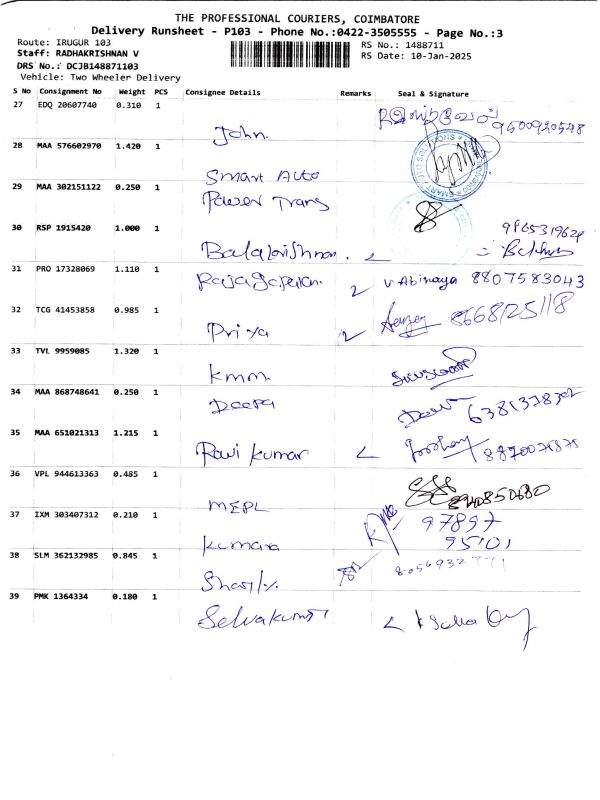 THE PROFESSIONAL COURIERS, COIMBATORE
Delivery Runsheet - P103 - Phone No.:0422-3505555 - Page No.:3
Route: IRUGUR 103
RS No.: 1488711
Staff: RADHAKRISHNAN V
RS Date: 10-Jan-2025
DRS No.: DCJB148871103
Vehicle: Two Wheeler Delivery
S No Consignment No Weight PCS Consignee Details Remarks Seal & Signature
27 EDQ 20607740 0.310 1
John. 9600920548
28 MAA 576602970 1.420 1
Smart Auto
29 MAA 302151122 0.250 1
Power Trans
30 RSP 1915420 1.000 1
Balakrishnan.
31 PRO 17328069 1.110 1
Rajagopalan. V Abinaya 8807583043
32 TCG 41453858 0.985 1
Priya 8668125118
33 TVL 9959085 1.320 1
kmm.
34 MAA 868748641 0.250 1
Deepa
35 MAA 651021313 1.215 1
Ravi kumar
36 VPL 944613363 0.485 1
MEPL 8940850680
37 IXM 303407312 0.210 1
kumara 97897
95101
38 SLM 362132985 0.845 1
39 PMK 1364334 0.180 1
Selvakumar